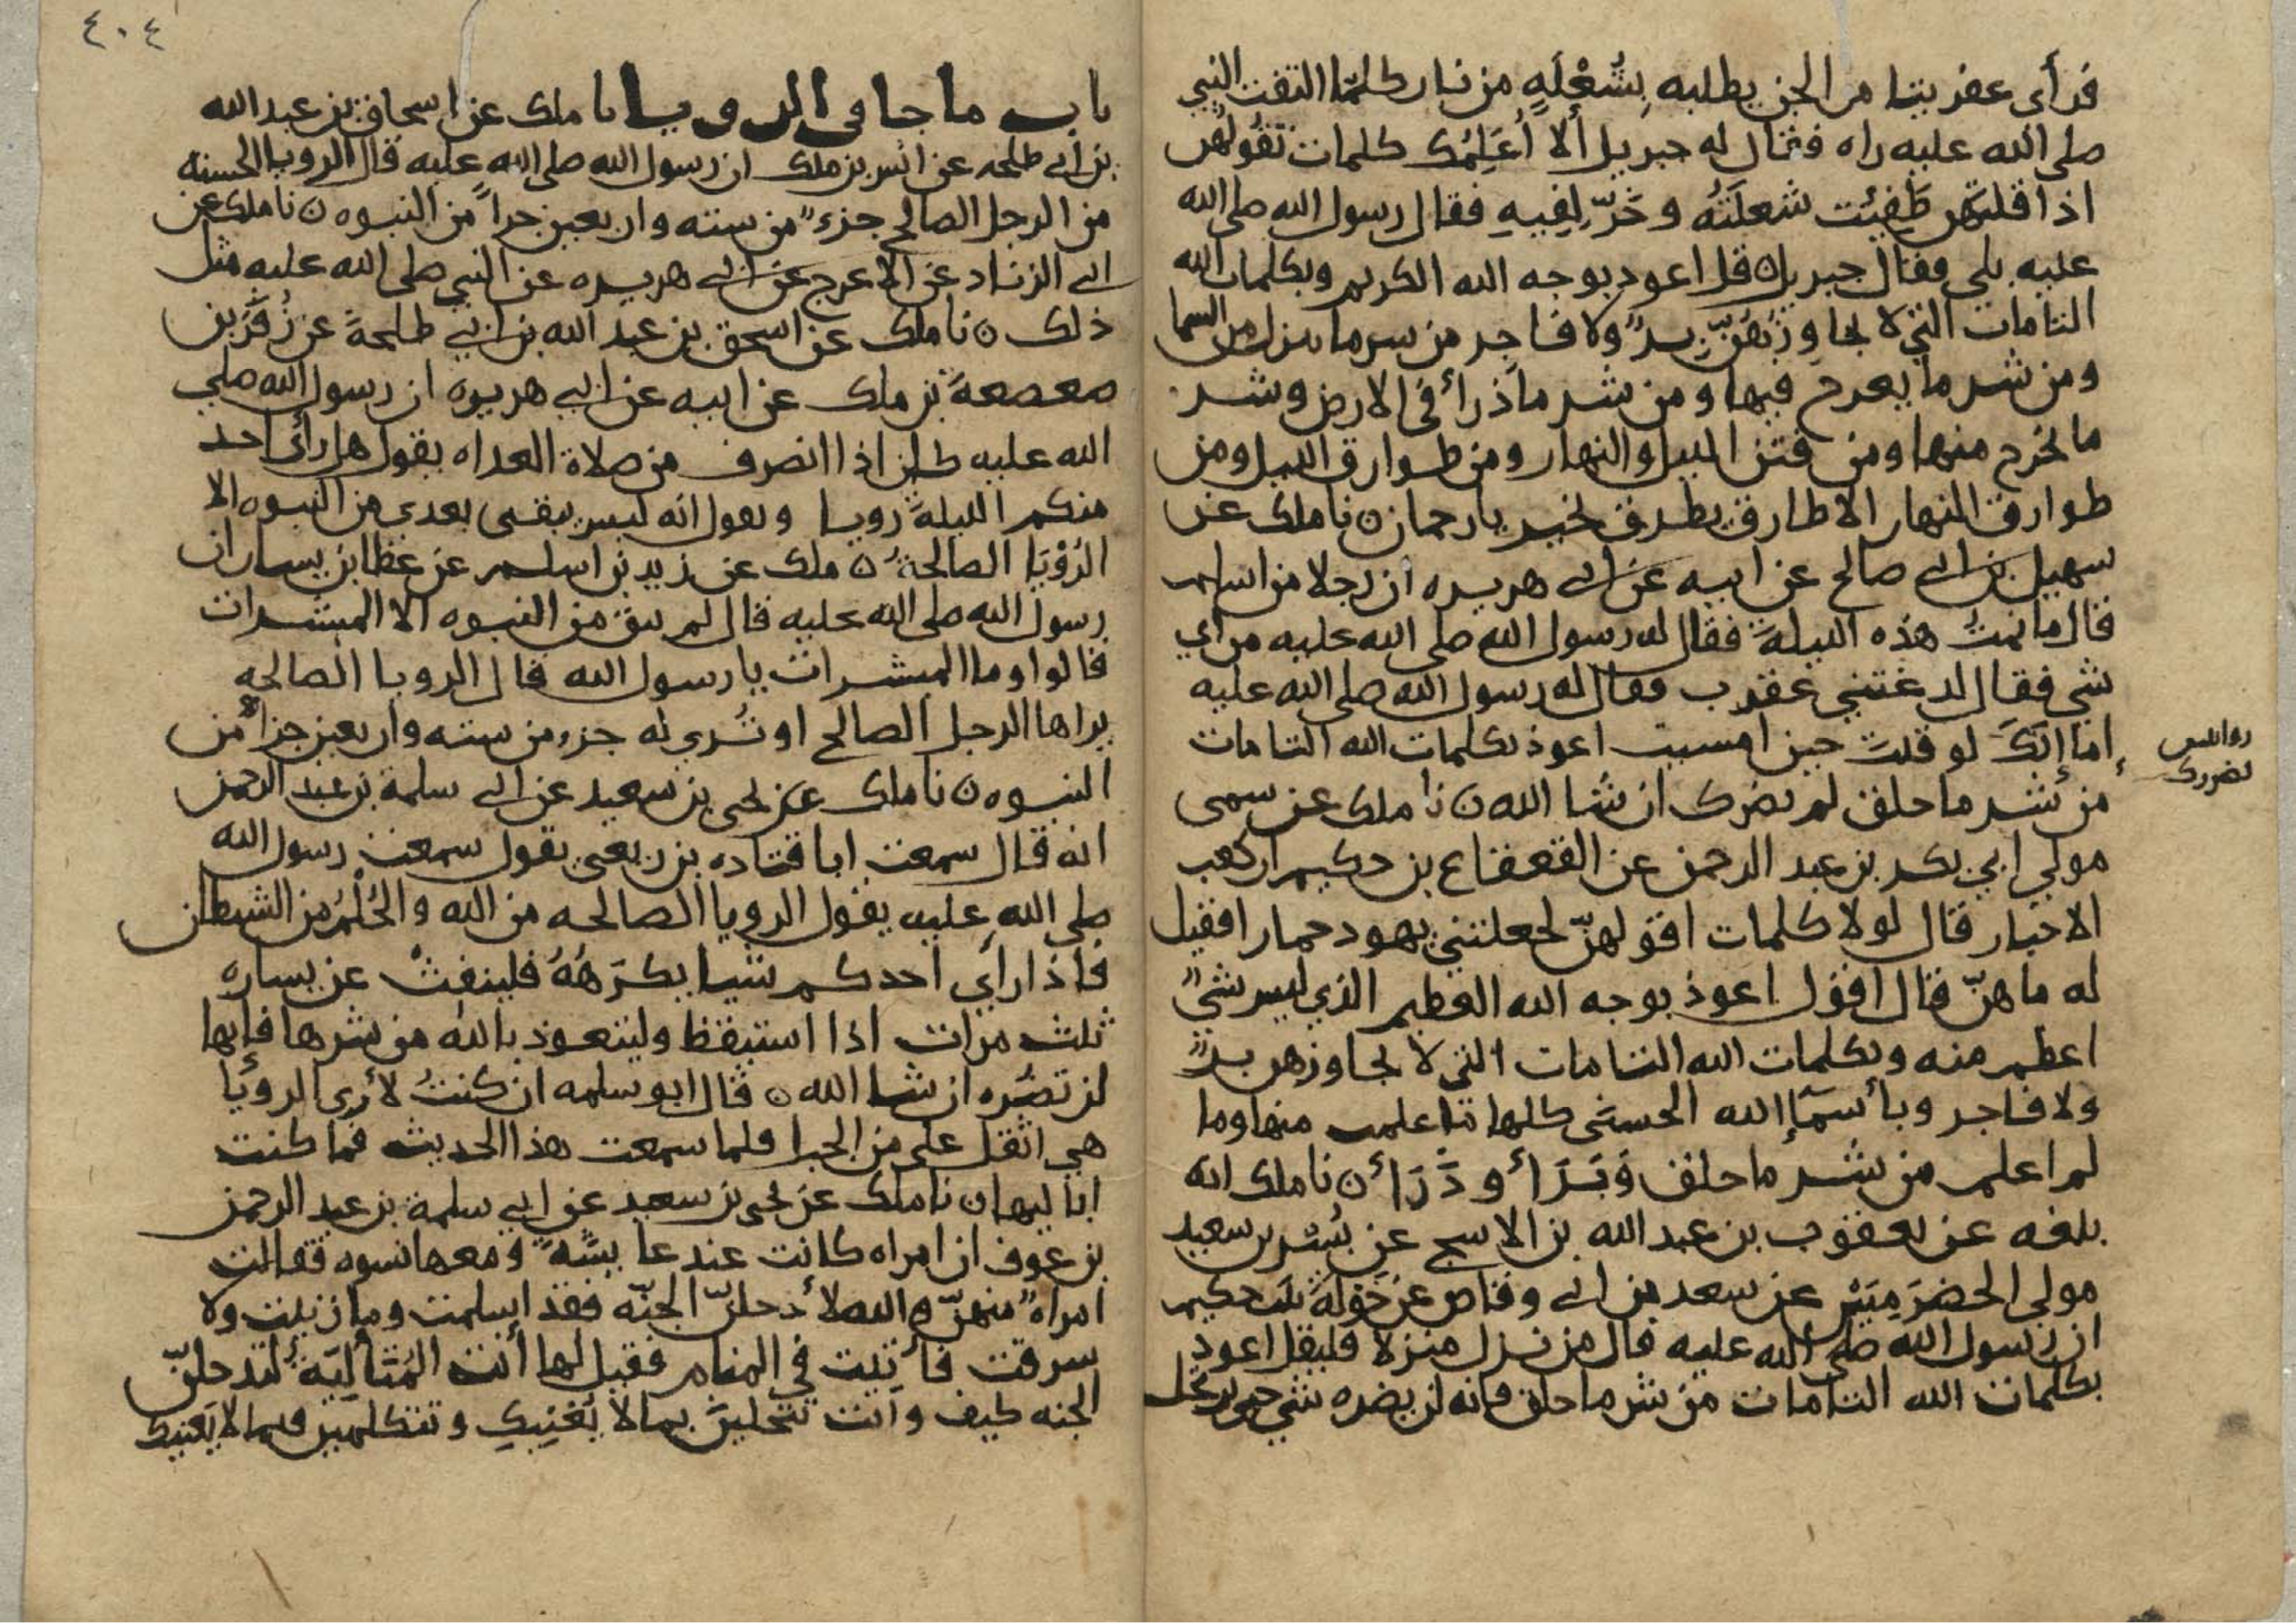 فرأى عفريتا من الجن يطلبه بشُعْلَةٍ من نار كلما التفت النبي
صلى الله عليه راه فقال له جبريل ألا أُعَلِّمُك كلمات تقولهن
اذا قلتهن طَفِئت شعلَتُه وخَرّ لِفِيهِ فقال رسول الله صلى الله
عليه بلى فقال جبريل قل اعوذ بوجه الله الكريم وبكلمات الله
التامات التي لا يجاوزهُنّ برٌ ولا فاجر من شر ما ينزل من السما
ومن شر ما يعرج فيها ومن شر ما ذرأ في الارض وشر
ما يخرج منها ومن فتن الليل والنهار ومن طوارق الليل ومن
طوارق النهار الا طارق يطرق بخير يا رحمان ن نا ملك عن
سهيل بن ابي صالح عن ابيه عن ابي هريره ان رجلا من اسلم
قال ما نمتُ هذه الليلةَ فقال له رسول الله صلى الله عليه من أي
شي فقال لدغتني عقرب فقال له رسول الله صلى الله عليه
إما إنكَ لو قلتَ حين امسيت اعوذ بكلمات الله التامات
من شر ما خلق لم يضرك ان شا الله ن نا ملك عن سمي
مولى ابي بكر بن عبد الرحمن عن القعقاع بن حكيم ان كعب
الاحبار قال لولا كلمات اقولهنّ لجعلتني يهود حمارا فقيل
له ما هنّ فقال اقول اعوذ بوجه الله العظيم الذي ليس شيٌ
اعظم منه وبكلمات الله التامات التي لا يجاوزهن برٌ
ولا فاجر وبأسمَآإ الله الحسنى كلها ما علمت منها وما
لم اعلم من شر ما خلق وَبَرَأ وذَرَأ ن نا ملك انه
بلغه عن يعقوب بن عبد الله بن الاشج عن بُسْر بن سعيد
مولى الحضرَمِيّين عن سعد بن ابي وقاص عن خَوْلةَ بنت حكيم
ان رسول الله صلى الله عليه قال من نزل منزلا فليقل اعوذ
بكلمات الله التامات من شر ما خلق فانه لن يضره شي حتى يرتحل
٤٠٤
باب ما جا في الرويا نا ملك عن اسحاق بن عبد الله
بن أبي طلحه عن انس بن ملك ان رسول الله صلى الله عليه قال الرويا الحسنه
من الرجل الصالح جزءٌ من سته واربعين جزاً من النبوه ن نا ملك عن
ابي الزناد عن الاعرج عن ابي هريره عن النبي صلى الله عليه مثل
ذلك ن نا ملك عن اسحق بن عبد الله بن ابي طلحةَ عن زُفَرَ بن
صعصعةَ بن ملك عن ابيه عن ابي هريره ان رسول الله صلى
الله عليه كان اذا انصرف من صلاة الغداه يقول هل رأى احد
منكم الليلةَ رويا ويقول انه ليس يبقى بعدي من النبوه الا
الرُؤيَا الصالحةُ ن ملك عن زيد بن اسلم عن عطا بن يسار ان
رسول الله صلى الله عليه قال لم يبق من النبوه الا المبشرات
قالوا وما المبشرات يا رسول الله قال الرويا الصالحه
يراها الرجل الصالح او تُرى له جزء من سته واربعين جزاً من
النبوه ن نا ملك عن يحيى بن سعيد عن ابي سلمة بن عبد الرحمن
انه قال سمعت ابا قتاده بن ربعي يقول سمعت رسول الله
صلى الله عليه يقول الرويا الصالحه من الله والحُلْمُ من الشيطان
فاذا رأى احدكم شيا يكرَهُهُ فلينفِثْ عن يساره
ثلث مرات اذا استيقظ وليتعوذ بالله من شرها فإنها
لن تضُره ان شا الله ن قال ابو سلمه ان كنتُ لأرى الرويَا
هي اثقل علي من الجبل فلما سمعت هذا الحديث فما كنت
اباليها ن نا ملك عن يحيى بن سعيد عن ابي سلمة بن عبد الرحمن
بن عوف ان امراه كانت عند عايشَهَ ومعها نسوه فقالت
امراهٌ منهنّ والله لأدخلنّ الجنّه فقد اسلمت وما زنيت ولا
سرقت فأُتِيت في المنام فقيل لها أنت المُتأليَة لتدخلنّ
الجنه كيف وانت تبخلين بما لا يُغنِيكِ وتتكلمين فيما لا يَعنِيك